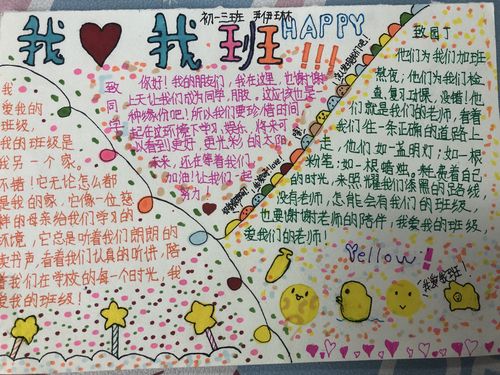 初一三班 尹伊琳
我❤我班 HAPPY!!!
我
爱我的
班级,
我的班级是
我另一个家。
不错!它无论怎么都
是我的家,它像一位慈
祥的母亲给我们学习的
环境,它总是听着我们朗朗的
读书声,看着我们认真的听讲,陪
着我们在学校的每一个时光,我
爱我的班级!
致同学
你好!我的朋友们,我在这里,也谢谢
上天让我们成为同学,朋友,这应该也是一
种缘份吧!所以我们要珍惜时间
一起在这环境下学习,娱乐,将来可
以看到更好、更光彩的太阳
未来,还在等着我们,
加油!让我们一起
努力!
致园丁
他们为我们加班
熬夜,他们为我们检
查,复习功课,没错!他
们就是我们的老师,看着
我们在一条正确的道路上
走,他们如一盏明灯;如一根
粉笔;如一根蜡烛。耗费着自己
的时光,来照耀我们漆黑的路线
没有老师,怎能会有我们的班级,
也要谢谢老师的陪伴,我爱我的班级,
爱我们的老师!
Yellow!
我爱我班!